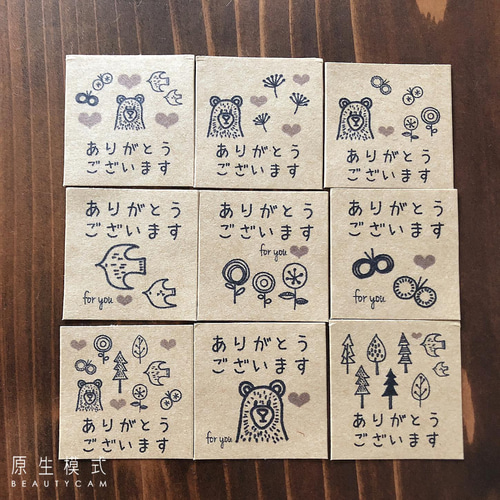 ありがとう
ございます
ありがとう
ございます
ありがとう
ございます
ありがとう
ございます
for you
ありがとう
ございます
for you
ありがとう
ございます
for you
ありがとう
ございます
ありがとう
ございます
for you
ありがとう
ございます
原生模式
BEAUTYCAM